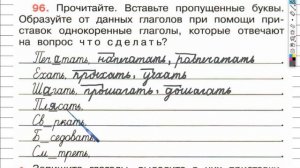 96. Прочитайте. Вставьте пропущенные буквы.
Образуйте от данных глаголов при помощи при-
ставок однокоренные глаголы, которые отвечают
на вопрос что сделать?
Печатать, напечатать, распечатать
Ехать, проехать, уехать
Шагать, прошагать, дошагать
Плясать,
Св_ркать,
Б_седовать,
См_треть,